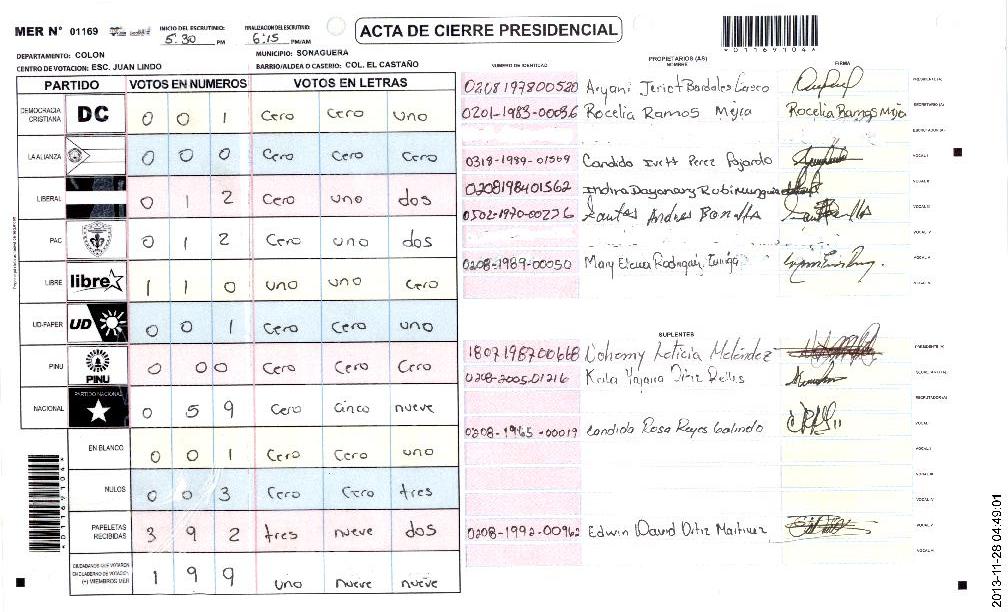 MER N° 01169 INICIO DEL ESCRUTINIO: 5:30 PM FINALIZACION DEL ESCRUTINIO: 6:15 PM/AM ACTA DE CIERRE PRESIDENCIAL
*01169104*
DEPARTAMENTO: COLON MUNICIPIO: SONAGUERA
CENTRO DE VOTACION: ESC. JUAN LINDO BARRIO/ALDEA O CASERIO: COL. EL CASTAÑO
PARTIDO VOTOS EN NUMEROS VOTOS EN LETRAS
DEMOCRACIA CRISTIANA DC 0 0 1 Cero Cero uno
LA ALIANZA 0 0 0 Cero Cero Cero
LIBERAL 0 1 2 Cero uno dos
PAC 0 1 2 Cero uno dos
LIBRE libre 1 1 0 uno uno cero
UD-FAPER UD 0 0 1 Cero Cero uno
PINU PINU 0 0 0 Cero Cero Cero
NACIONAL PARTIDO NACIONAL 0 5 9 Cero Cinco nueve
EN BLANCO 0 0 1 Cero Cero uno
NULOS 0 0 3 Cero Cero tres
PAPELETAS RECIBIDAS 3 9 2 tres nueve dos
CIUDADANOS QUE VOTARON EN CUADERNO DE VOTACION (+) MIEMBROS MER 1 9 9 uno nueve nueve
*01169104*
NUMERO DE IDENTIDAD PROPIETARIOS (AS) NOMBRE FIRMA
0208197800520 Jeriot Bardales PRESIDENTE (A)
0201-1983-00086 Rocelia Ramos Mejia Rocelia Ramos Mejia SECRETARIO (A)
ESCRUTADOR (A)
0318-1989-01569 Candido Perez Fajardo VOCAL I
0208198401562 Indira Dayanary VOCAL II
0502-1970-00226 Santos Andres Bonilla VOCAL III
VOCAL IV
0208-1989-00050 Mary VOCAL V
SUPLENTES
1807198700668 Dohemy Leticia Meléndez PRESIDENTE (A)
0208-2005-01216 Karla SECRETARIO (A)
ESCRUTADOR (A)
0208-1965-00019 Candida Rosa Reyes Galindo VOCAL I
VOCAL II
VOCAL III
VOCAL IV
0208-1992-00962 Edwin David Ortiz Martinez VOCAL V
2013-11-28 04:49:01